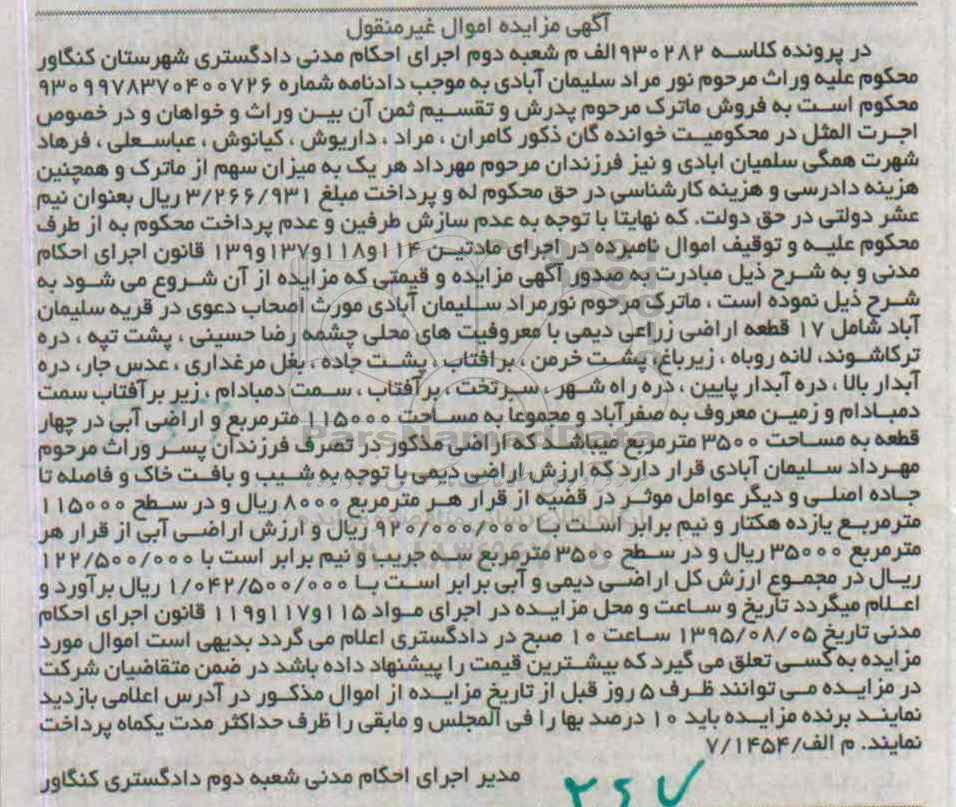 آگهی مزایده اموال غیرمنقول
در پرونده کلاسه ۹۳۰۲۸۲ الف م شعبه دوم اجرای احکام مدنی دادگستری شهرستان کنگاور
محکوم علیه وراث مرحوم نور مراد سلیمان آبادی به موجب دادنامه شماره ۹۳۰۹۹۷۸۳۷۰۴۰۰۷۲۶
محکوم است به فروش ماترک مرحوم پدرش و تقسیم ثمن آن بین وراث و خواهان و در خصوص
اجرت المثل در محکومیت خوانده گان ذکور کامران ، مراد ، داریوش ، کیانوش ، عباسعلی ، فرهاد
شهرت همگی سلمیان ابادی و نیز فرزندان مرحوم مهرداد هر یک به میزان سهم از ماترک و همچنین
هزینه دادرسی و هزینه کارشناسی در حق محکوم له و پرداخت مبلغ ۳/۲۶۶/۹۳۱ ریال بعنوان نیم
عشر دولتی در حق دولت. که نهایتا با توجه به عدم سازش طرفین و عدم پرداخت محکوم به از طرف
محکوم علیه و توقیف اموال نامبرده در اجرای مادتین ۱۱۴و۱۱۸و۱۳۷و۱۳۹ قانون اجرای احکام
مدنی و به شرح ذیل مبادرت به صدور آگهی مزایده و قیمتی که مزایده از آن شروع می شود به
شرح ذیل نموده است ، ماترک مرحوم نورمراد سلیمان آبادی مورث اصحاب دعوی در قریه سلیمان
آباد شامل ۱۷ قطعه اراضی زراعی دیمی با معروفیت های محلی چشمه رضا حسینی ، پشت تپه ، دره
ترکاشوند، لانه روباه ، زیرباغ، پشت خرمن ، برافتاب ، پشت جاده ، بغل مرغداری ، عدس جار، دره
آبدار بالا ، دره آبدار پایین ، دره راه شهر ، سرتخت ، برآفتاب ، سمت دمبادام ، زیر برآفتاب سمت
دمبادام و زمین معروف به صفرآباد و مجموعا به مساحت ۱۱۵۰۰۰ مترمربع و اراضی آبی در چهار
قطعه به مساحت ۳۵۰۰ مترمربع میباشد که اراضی مذکور در تصرف فرزندان پسر وراث مرحوم
مهرداد سلیمان آبادی قرار دارد که ارزش اراضی دیمی با توجه به شیب و بافت خاک و فاصله تا
جاده اصلی و دیگر عوامل موثر در قضیه از قرار هر مترمربع ۸۰۰۰ ریال و در سطح ۱۱۵۰۰۰
مترمربع یازده هکتار و نیم برابر است با ۹۲۰/۰۰۰/۰۰۰ ریال و ارزش اراضی آبی از قرار هر
مترمربع ۳۵۰۰۰ ریال و در سطح ۳۵۰۰ مترمربع سه جریب و نیم برابر است با ۱۲۲/۵۰۰/۰۰۰
ریال در مجموع ارزش کل اراضی دیمی و آبی برابر است با ۱/۰۴۲/۵۰۰/۰۰۰ ریال برآورد و
اعلام میگردد تاریخ و ساعت و محل مزایده در اجرای مواد ۱۱۵و۱۱۷و۱۱۹ قانون اجرای احکام
مدنی تاریخ ۱۳۹۵/۰۸/۰۵ ساعت ۱۰ صبح در دادگستری اعلام می گردد بدیهی است اموال مورد
مزایده به کسی تعلق می گیرد که بیشترین قیمت را پیشنهاد داده باشد در ضمن متقاضیان شرکت
در مزایده می توانند ظرف ۵ روز قبل از تاریخ مزایده از اموال مذکور در آدرس اعلامی بازدید
نمایند برنده مزایده باید ۱۰ درصد بها را فی المجلس و مابقی را ظرف حداکثر مدت یکماه پرداخت
نمایند. م الف/۷/۱۴۵۴
مدیر اجرای احکام مدنی شعبه دوم دادگستری کنگاور
ParsNamadData